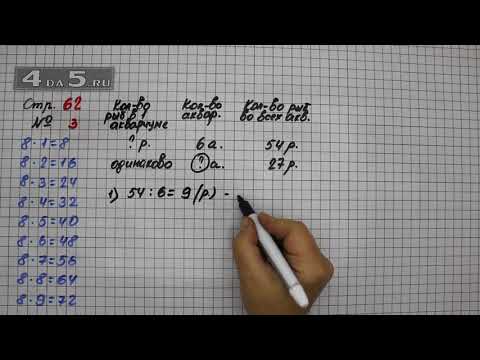 4 DA 5.RU
Стр. 62
№ 3
8 · 1 = 8
8 · 2 = 16
8 · 3 = 24
8 · 4 = 32
8 · 5 = 40
8 · 6 = 48
8 · 7 = 56
8 · 8 = 64
8 · 9 = 72
Кол-во рыб в 1 аквариуме Кол-во аквар. Кол-во рыб во всех акв.
? р. 6 а. 54 р.
одинаково ? а. 27 р.
1) 54 : 6 = 9 (р.) -